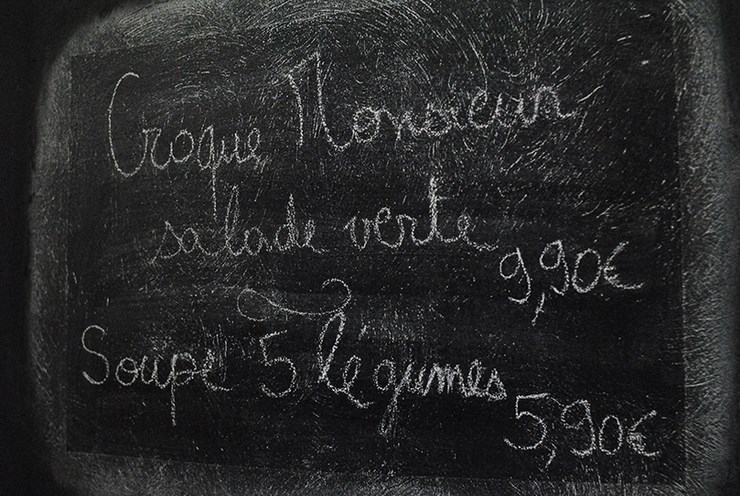 Croque Monsieur
salade verte
9,90€
Soupe 5 légumes
5,90€